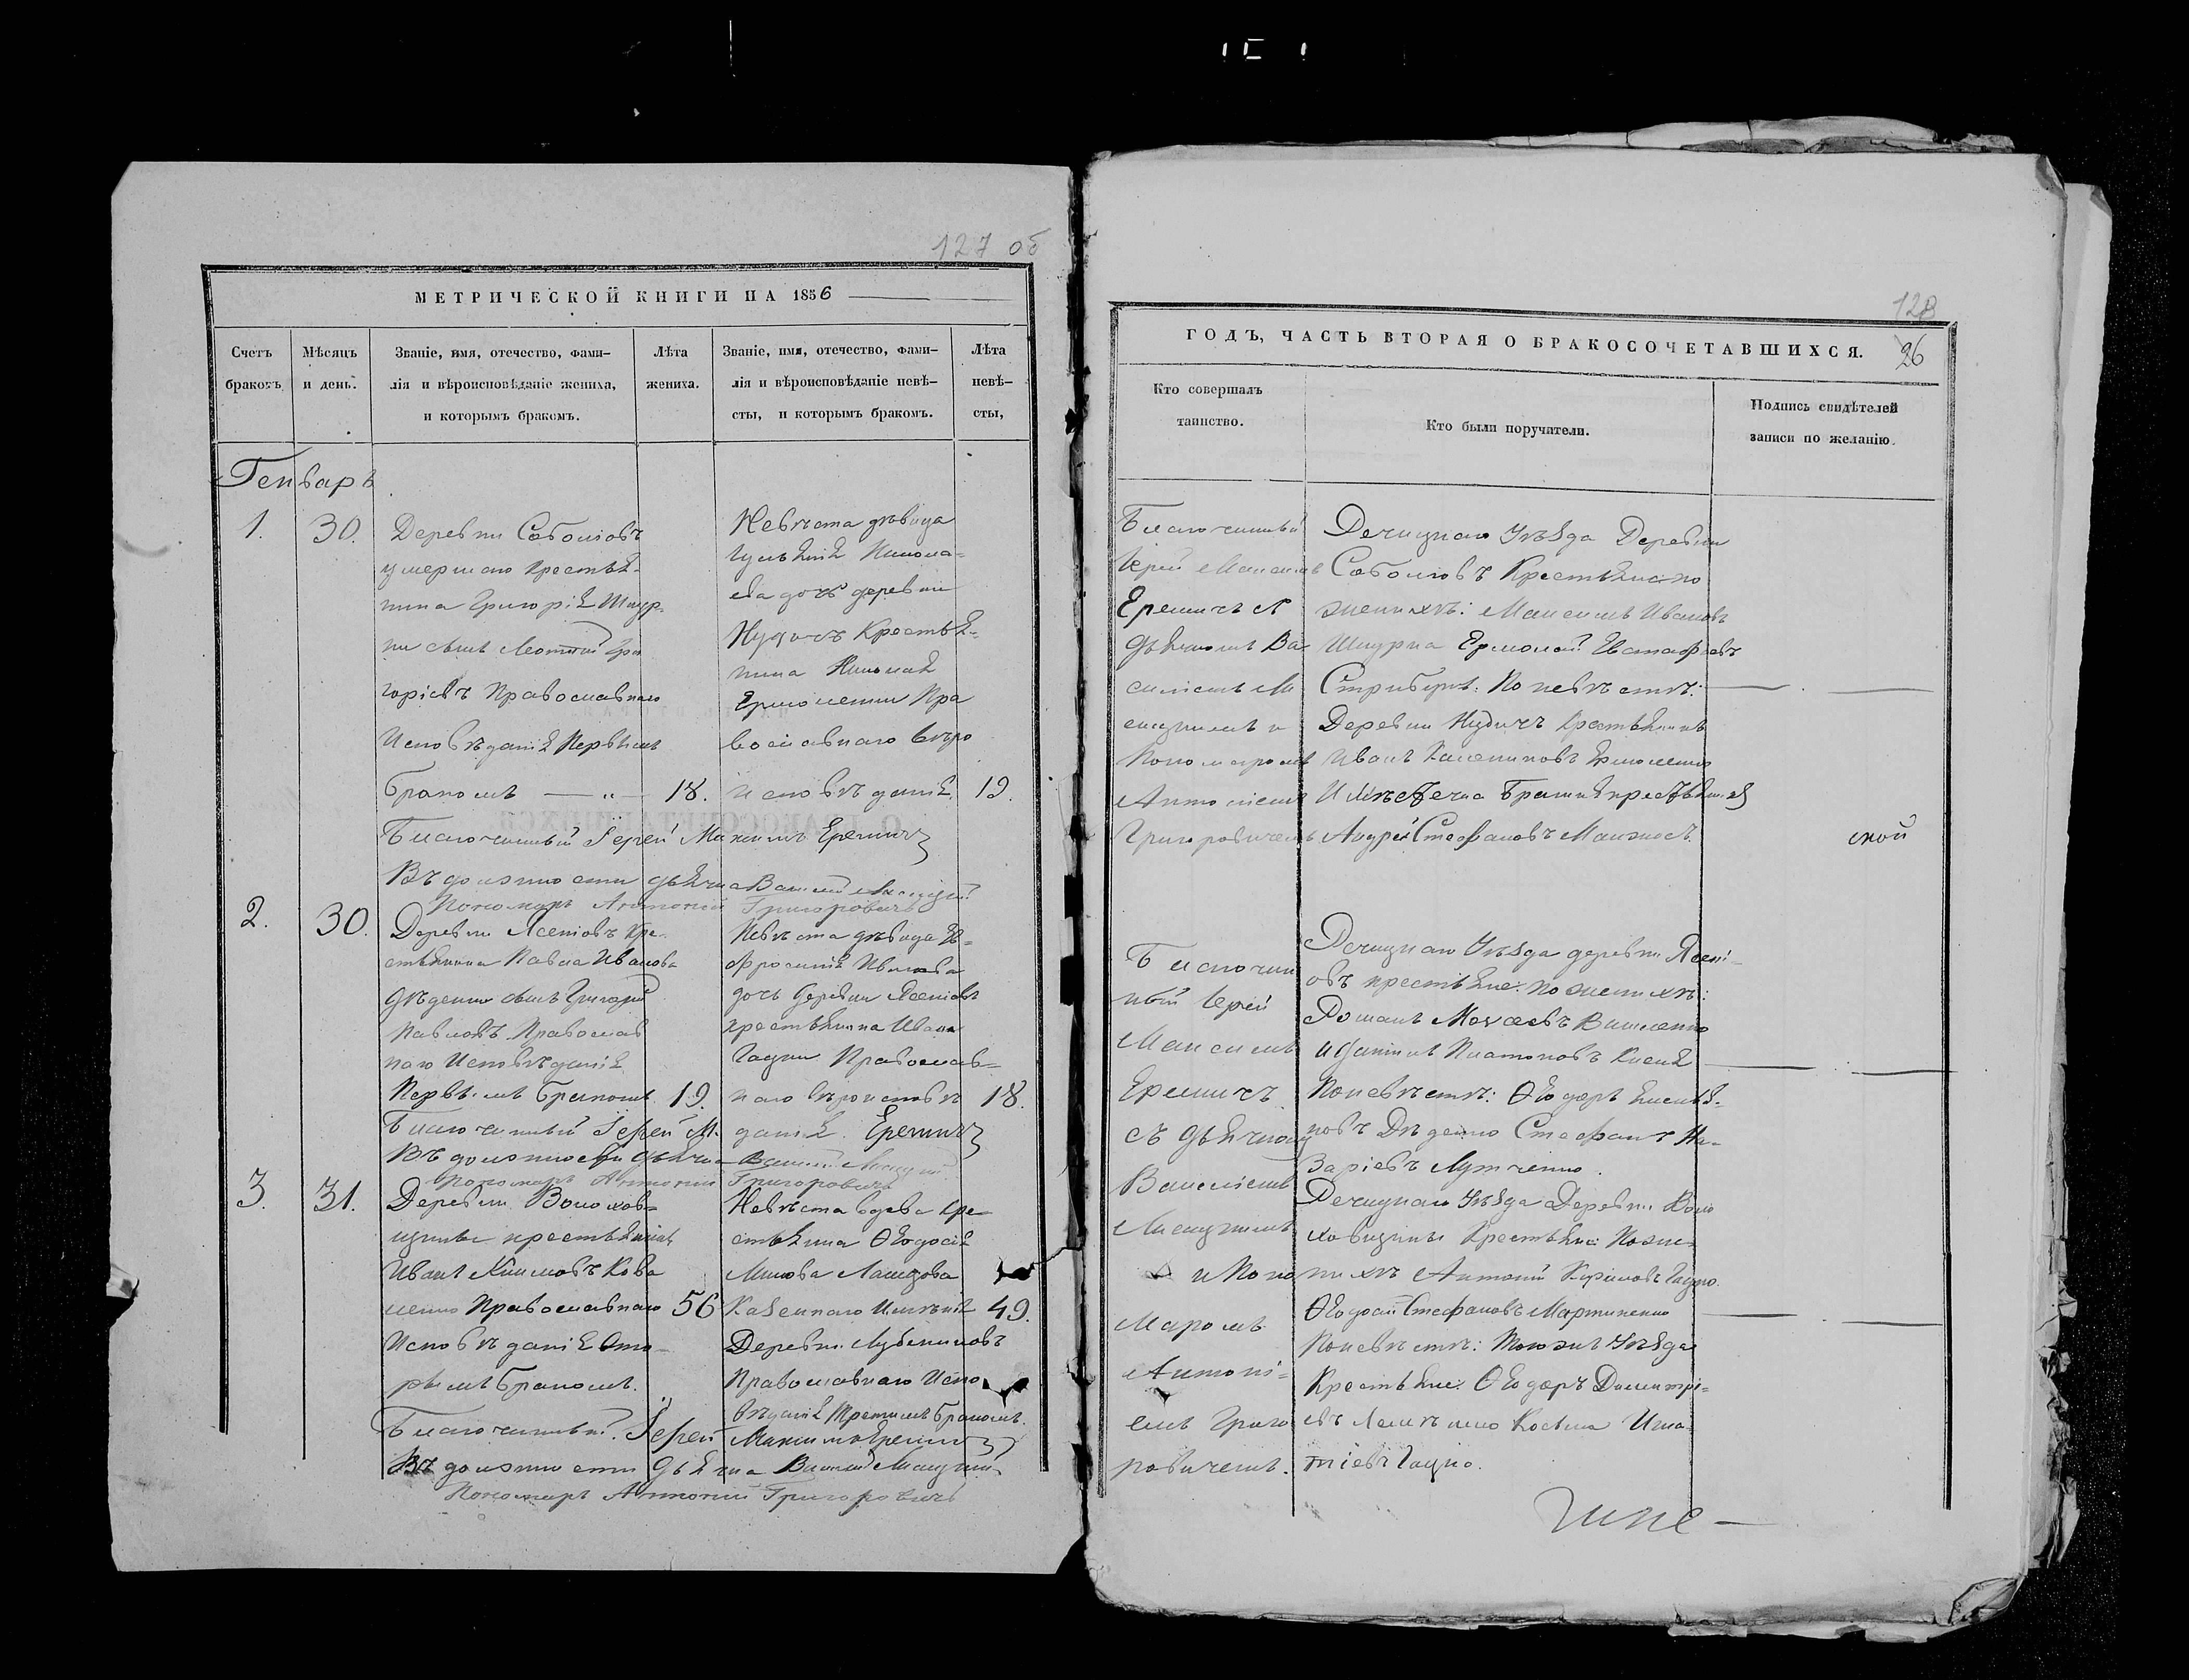 127 об
МЕТРИЧЕСКОЙ КНИГИ НА 1856
Счетъ
браковъ
Мѣсяцъ
и день.
Званіе, имя, отечество, фами-
лія и вѣроисповѣданіе жениха,
и которымъ бракомъ.
Лѣта
жениха.
Званіе, имя, отечество, фами-
лія и вѣроисповѣданіе невѣ-
сты, и которымъ бракомъ.
Лѣта
невѣ-
сты,
Генварь
1.
30.
Деревни Соболіовъ
умершаго Крестья-
нина Григорія Шнур-
ки сынъ Леонтій Гри
горіевъ Православнаго
Исповѣданія Первымъ
бракомъ — „ — 18.
Невѣста дѣвица
Іуліанія Никола-
ева дочь деревни
Нудичъ Крестья-
нина Николая
Ермоленки Пра
вославнаго вѣро
исповѣданія. 19.
Благочинный Іерей Максимъ Еремичъ
Въ должности дьячка Василій Лисицкій
Пономарь Антоній Григоровичъ
2.
30.
Деревни Ясеніовъ Кре-
стьянина Павла Иванова
Дѣденки сынъ Григорій
Павловъ Православ
наго Исповѣданія
Первымъ бракомъ 19.
Невѣста дѣвица Ев-
фросинія Иванова
дочь деревни Ясеніовъ
крестьянина Ивана
Гацки Православ-
наго вѣроисповѣ 18.
Благочинный Іерей М. данія. Еремичъ
Въ должности дьячка Василій Лисицкій
Пономарь Антоній Григоровичъ
3.
31.
Деревни Волохов-
щины крестьянинъ
Иванъ Климовъ Кова
ленко Православнаго 56
Исповѣданія Вто-
рымъ бракомъ.
Невѣста вдова Кре-
стьянка Ѳеодосія
Казеннаго Имѣнія 49.
Деревни
Православнаго Испо
вѣданія Третимъ бракомъ.
Благочинный Іерей Максимъ Еремичъ
Въ должности дьячка Василій Лисицкій
Пономарь Антоній Григоровичъ
128
26
ГОДЪ, ЧАСТЬ ВТОРАЯ О БРАКОСОЧЕТАВШИХСЯ.
Кто совершалъ
таинство.
Кто были поручатели.
Подпись свидѣтелей
записи по желанію.
Благочинный
Іерей Максимъ
Еремичъ с
дьячкомъ Ва
силіемъ Ли
сицкимъ и
Пономаромъ
Антоніемъ
Григоровичемъ
Речицкаго Уѣзда Деревни
Соболіовъ Крестьяне по
женихѣ: Максимъ Ивановъ
Шнурка Ермолай Евстафіевъ
По невѣстѣ:
Деревни Нудичъ Крестьянинъ
Иванъ Ермоленко
И Мѣстечка Брагиня крестьянинъ
Андрей Стефановъ
ской
Благочин
ный Іерей
Максимъ
Еремичъ
съ дьячкомъ
Василіемъ
Лисицкимъ
и Поно
маромъ
Антоні-
емъ Григо
ровичемъ.
Речицкаго Уѣзда деревни Ясені-
овъ крестьяне: по женихѣ:
Романъ Моѵсеевъ
и Даніилъ Платоновъ
По невѣстѣ: Ѳеодоръ Емелья-
новъ Дѣденко Стефанъ На-
заріевъ
Речицкаго Уѣзда Деревни Воло
ховщины Крестьяне: По же-
нихѣ Антоній Кириловъ Гацко
Ѳеодосій Стефановъ Мартиненко
По невѣстѣ: Тогожъ Уѣзда
Крестьяне: Ѳеодоръ Димитрі-
евъ Козьма Игна-
тіевъ Гацко.